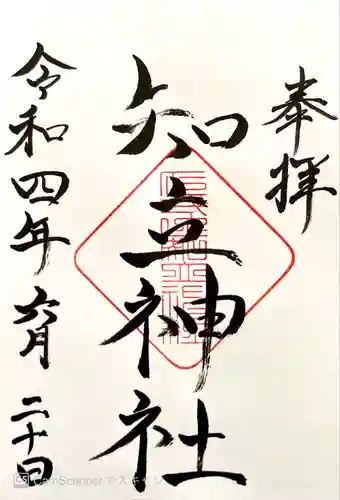 奉拝
知立神社
令和四年六月二十日
CamScannerでスキャン